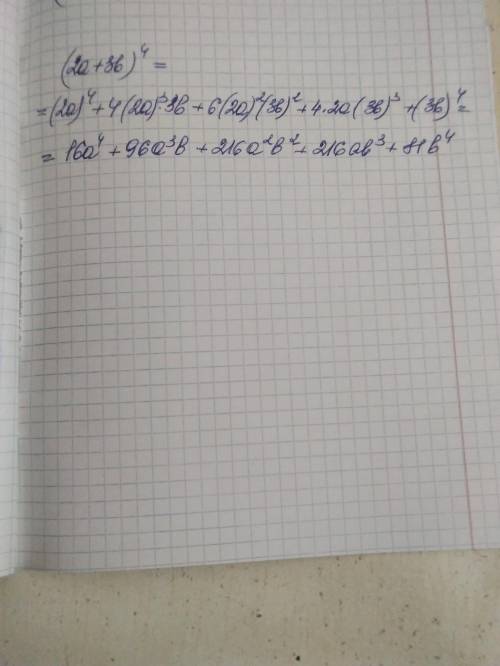 (2a+3b)⁴=
=(2a)⁴+4(2a)³·3b+6(2a)²(3b)²+4·2a(3b)³+(3b)⁴=
=16a⁴+96a³b+216a²b²+216ab³+81b⁴